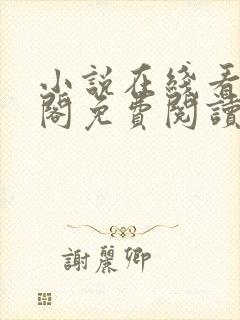 小說在綫看
閣免費閱讀
謝麗卿